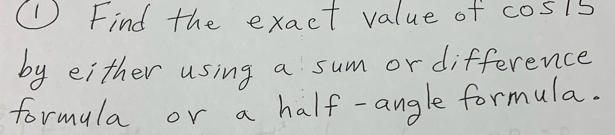 ① Find the exact value of cos 15
by either using a sum or difference
formula or a half-angle formula.